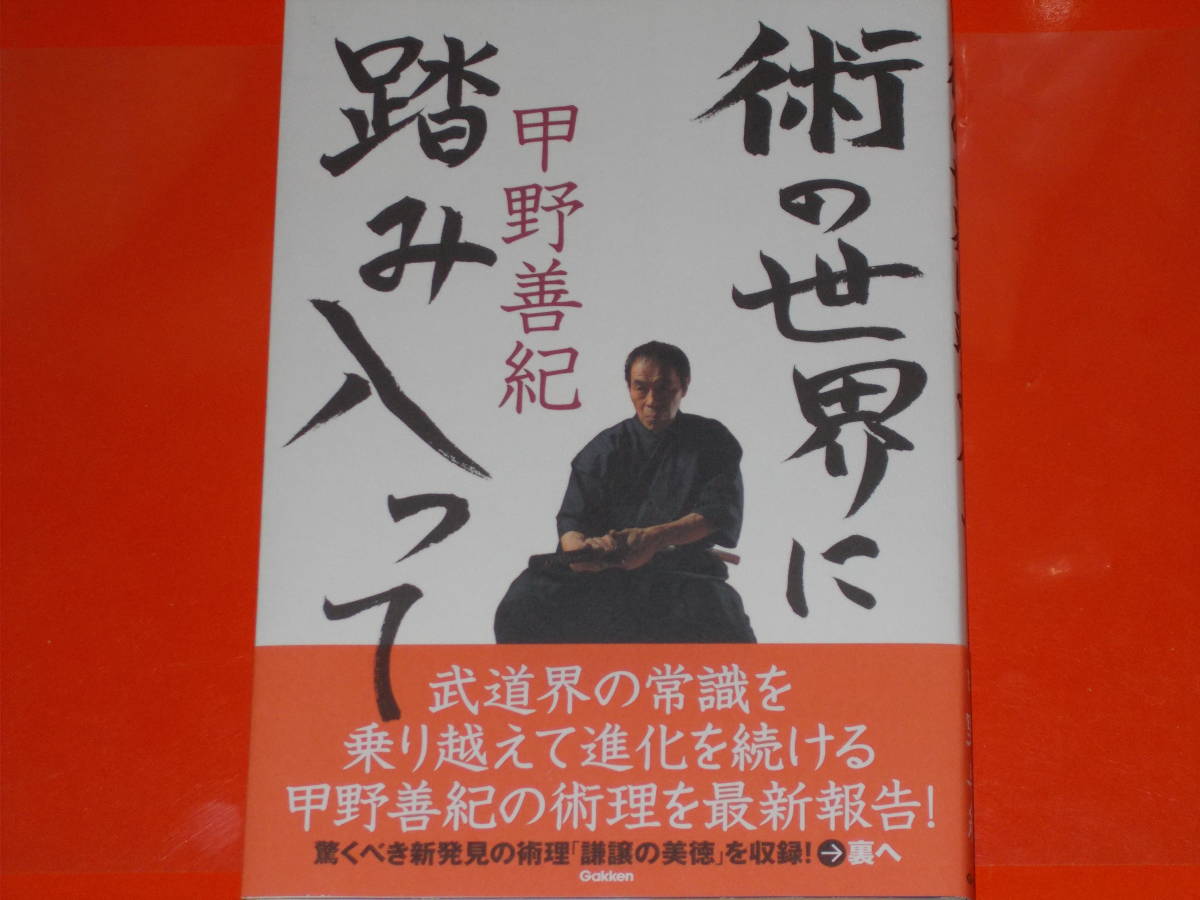 術の世界に
踏み入って
甲野善紀
武道界の常識を
乗り越えて進化を続ける
甲野善紀の術理を最新報告!
驚くべき新発見の術理「謙譲の美徳」を収録!→裏へ
Gakken